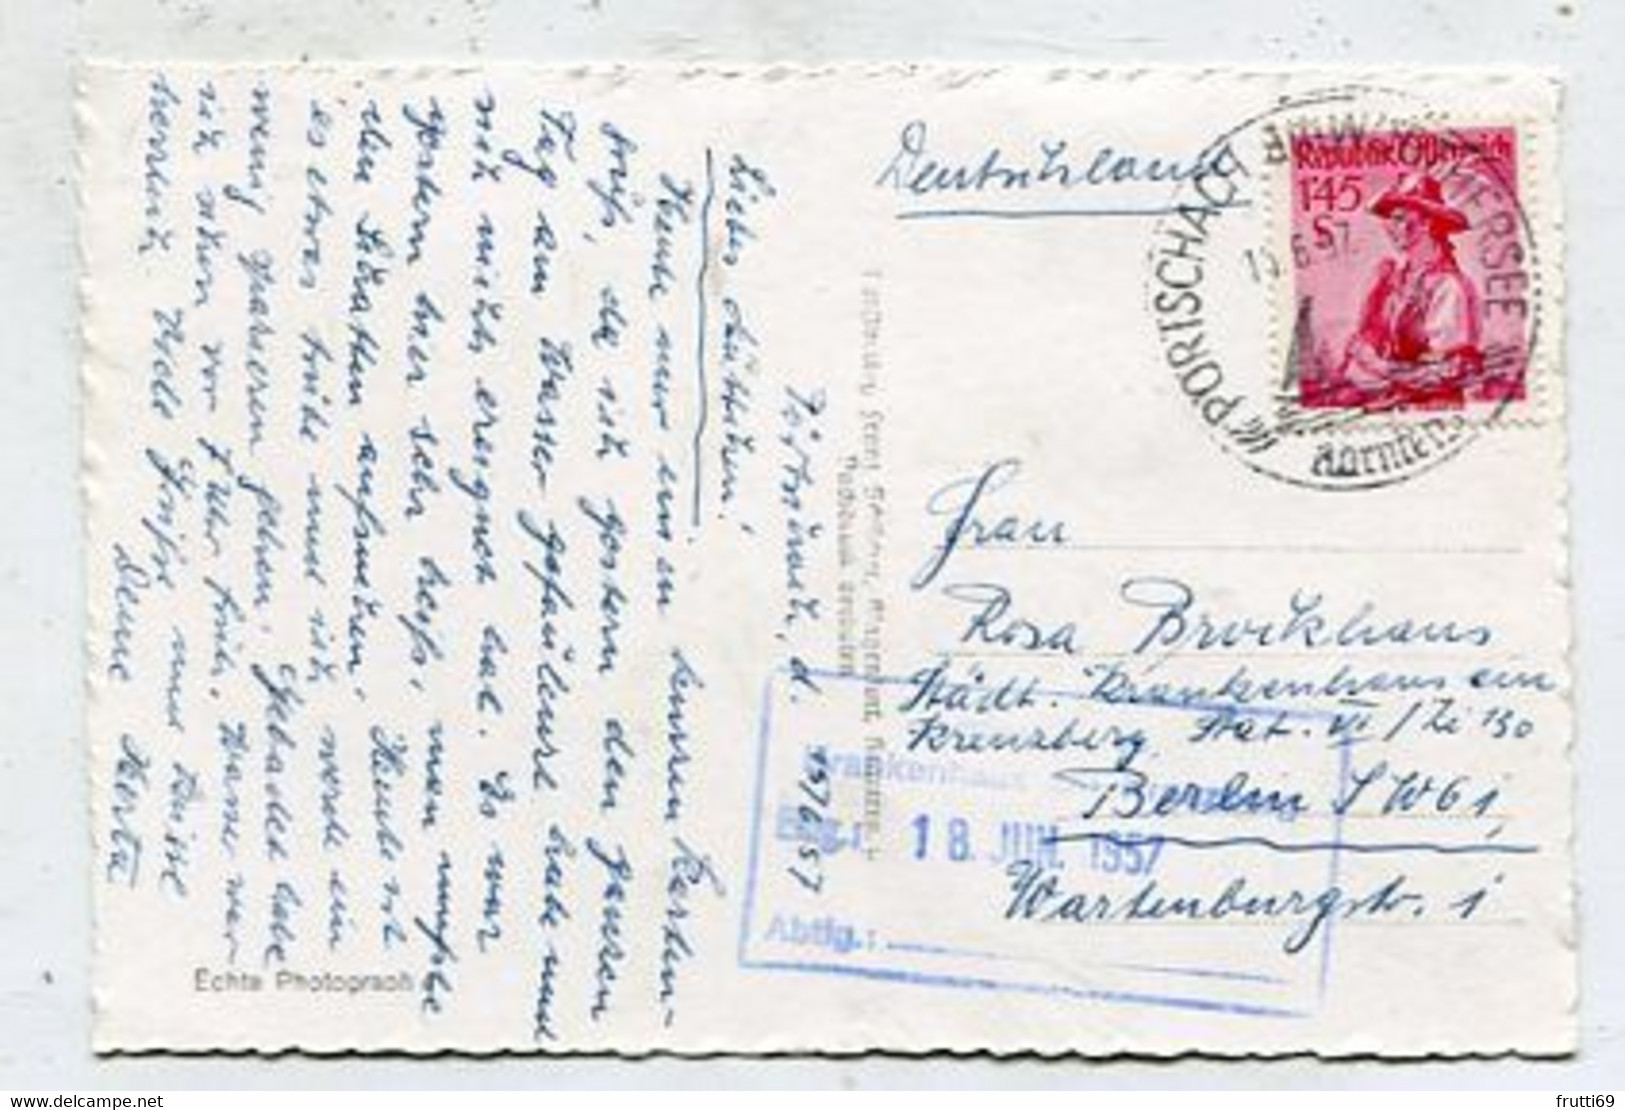 Pörtschach, d. 15/6.57
Liebes Lüttchen!
Heute nur einen kurzen Karten-
gruß, da ich gestern den ganzen
Tag am Wasser gefaulenzt habe und
sich nichts ereignet hat. Es war
gestern hier sehr heiß, man mußte
den Schatten aufsuchen. Heute ist
es etwas trübe und ich werde ein
wenig spazieren gehen. Gebadet habe
ich schon vor Uhr früh, Wasser war
herrlich. Viele Grüße und Küsse
Deine Herta
Echte Photograph
Deutschland
Republik Österreich
1'45
S
PÖRTSCHACH AM WÖRTHERSEE
15.6.57
Kärnten
Frau
Rosa Brockhaus
Städt. Krankenhaus am
Kreuzberg, Stat. VI / Zi 130
Berlin SW 61,
Wartenburgstr. 1
Krankenhaus
Eing.: 18. JUN. 1957
Abtlg.:
frutti69